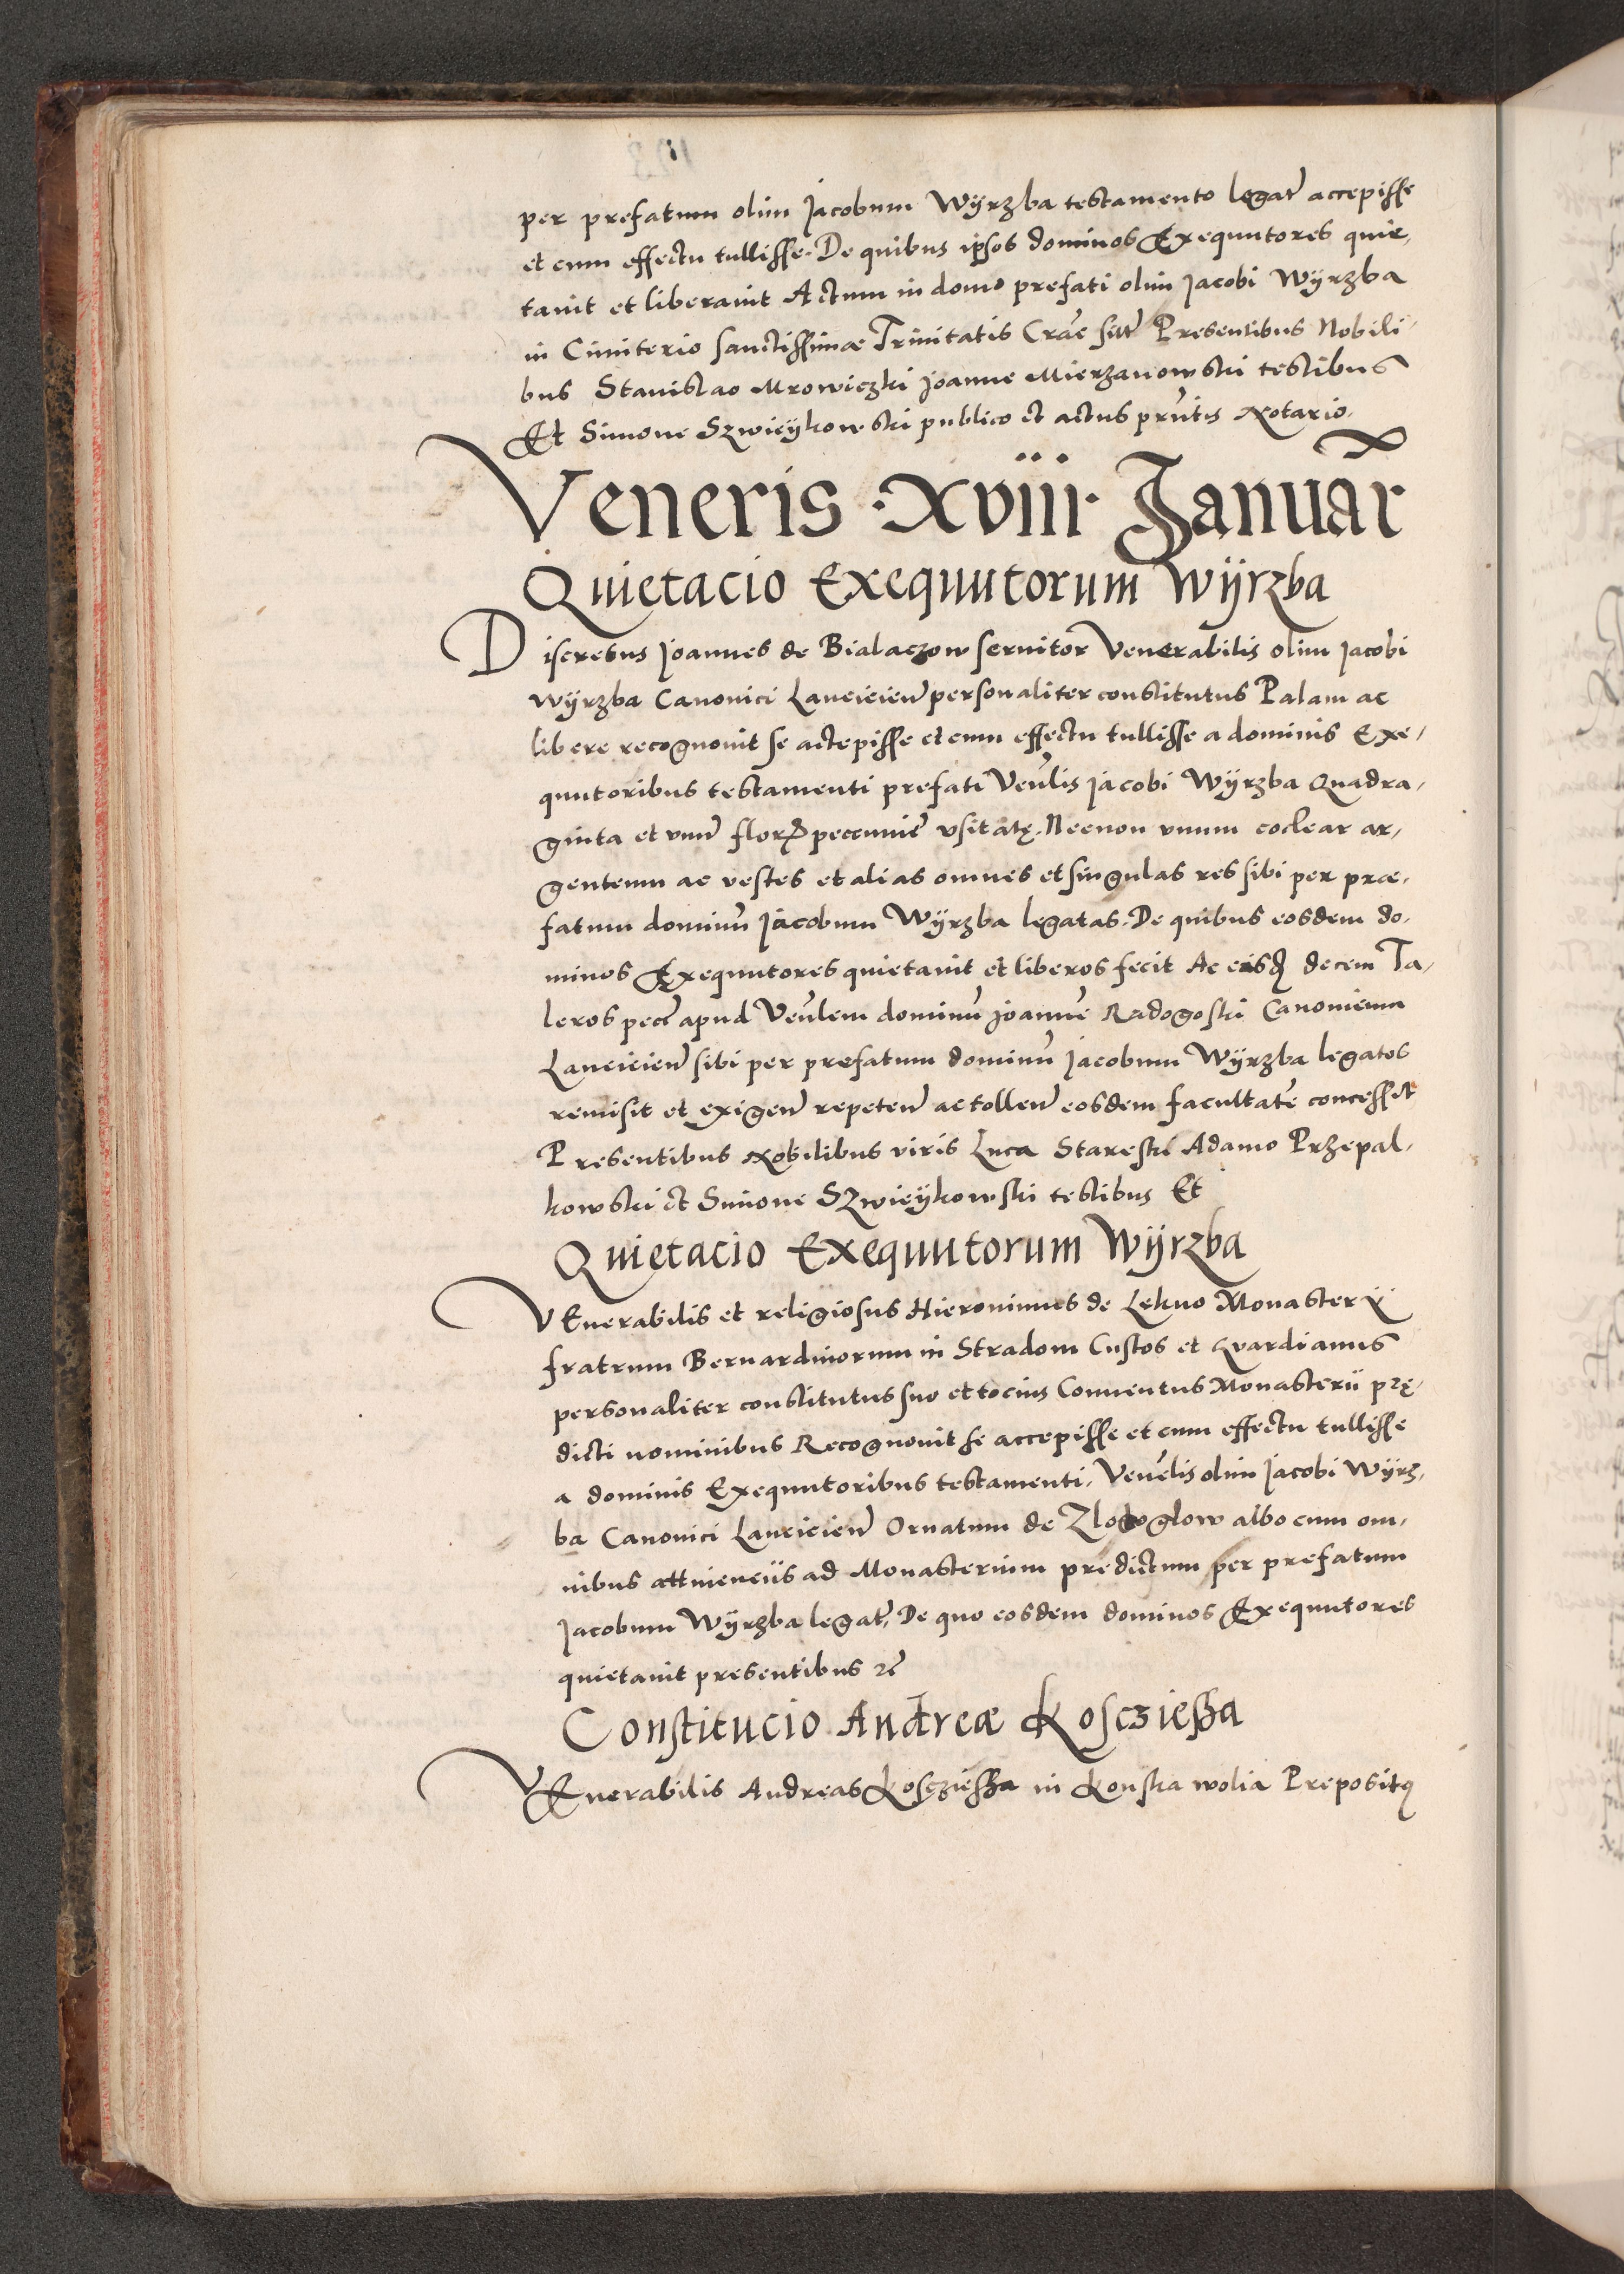 per prefatum olim Jacobum Wÿrzba testamento legat̃ accepisse
et cum effectu tullisse. De quibus ip̃sos dominos Exequutores quie,
tauit et liberauit Actum in domo prefati olim Jacobi Wÿrzba
in Cimiterio sanctissimæ Trinitatis Crãe sitt̃ Presentibus Nobili,
bus Stanislao Mrowiczki Joanne Mierzanowski testibus
Et Simone Szwieÿkowski publico et actus pr̃ntis Notario.
Veneris .Xviii. Januar̃
Quietacio Exequutorum Wÿrzba
Discretus Joannes de Bialaczow seruitor Venerabilis olim Jacobi
Wÿrzba Canonici Lancicien̄ personaliter constitutus Palam ac
libere recognouit se actepisse et cum effectu tullisse a dominis Exe,
quutoribus testamenti prefati Ven̄lis Jacobi Wÿrzba Quadra,
ginta et vnū florꝝ peccunie vsitatę. Necnon vnum coclear ar,
genteum ac vestes et alias omnes et singulas res sibi per præ,
fatum dominū Jacobum Wÿrzba legatas. De quibus eosdem do,
minos Exequutores quietauit et liberos fecit Ac eisd decem Ta,
leros pecc̃ apud Ven̄lem dominū Joannē Radogoski Canonicum
Lancicien̄ sibi per prefatum dominū Jacobum Wÿrzba legatos
remisit et exigen̄ repeten̄ ac tollen̄ eosdem facultatē concessit
Presentibus Nobilibus viris Luca Stareski Adamo Przepal,
kowski et Simone Szwieÿkowski testibus Et
Quietacio Exequutorum Wÿrzba
VEnerabilis et religiosus Hieronimus de Lekno Monasterÿ
fratrum Bernardinorum in Stradom Custos et Gvardianus
personaliter constitutus suo et tocius Conuentus Monasterii prę,
dicti nominibus Recognouit se accepisse et cum effectu tullisse
a dominis Exequutoribus testamenti, Ven̄elis olim Jacobi Wÿrz,
ba Canonici Lancicien̄ Ornatum de Zlotoglow albo cum om,
nibus attinenciis ad Monasterium predictum per prefatum
Jacobum Wÿrzba legat̃, De quo eosdem dominos Exequutores
quietauit presentibus rc̃
Constitucio Andreæ Koscziessza
VEnerabilis Andreas Koscziessza in Konska wolia Preposit9